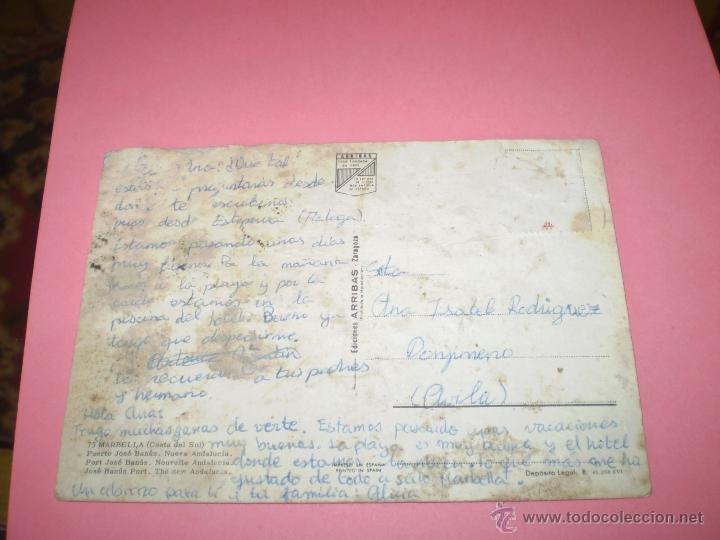 Ana: ¿Que tal
estás? preguntaras desde
donde te escribimos
pues desde Estepona (Malaga)
Estamos pasando unos dias
muy buenos. Por la mañana
vamos a la playa y por la
tarde estamos en la
piscina del hotel. Bueno ya
tengo que despedirme.
recuerdos a tus padres
y hermano.
Hola Ana:
Tengo muchas ganas de verte. Estamos pasando unas vacaciones
muy buenas. La playa es muy buena y el hotel
donde estamos también lo que más me ha
gustado de todo a sido Marbella.
Un abrazo para ti y tu familia: Alicia
75 MARBELLA (Costa del Sol)
Puerto José Banús. Nueva Andalucía.
Port José Banús. Nouvelle Andalucía.
José Banús Port. The new Andalucia.
ARRIBAS
Ediciones ARRIBAS - Zaragoza
Srta
Ana Isabel Rodriguez
(Avila)
IMPRESO EN ESPAÑA
PRINTED IN SPAIN
Depósito Legal. B.
www.todocoleccion.net